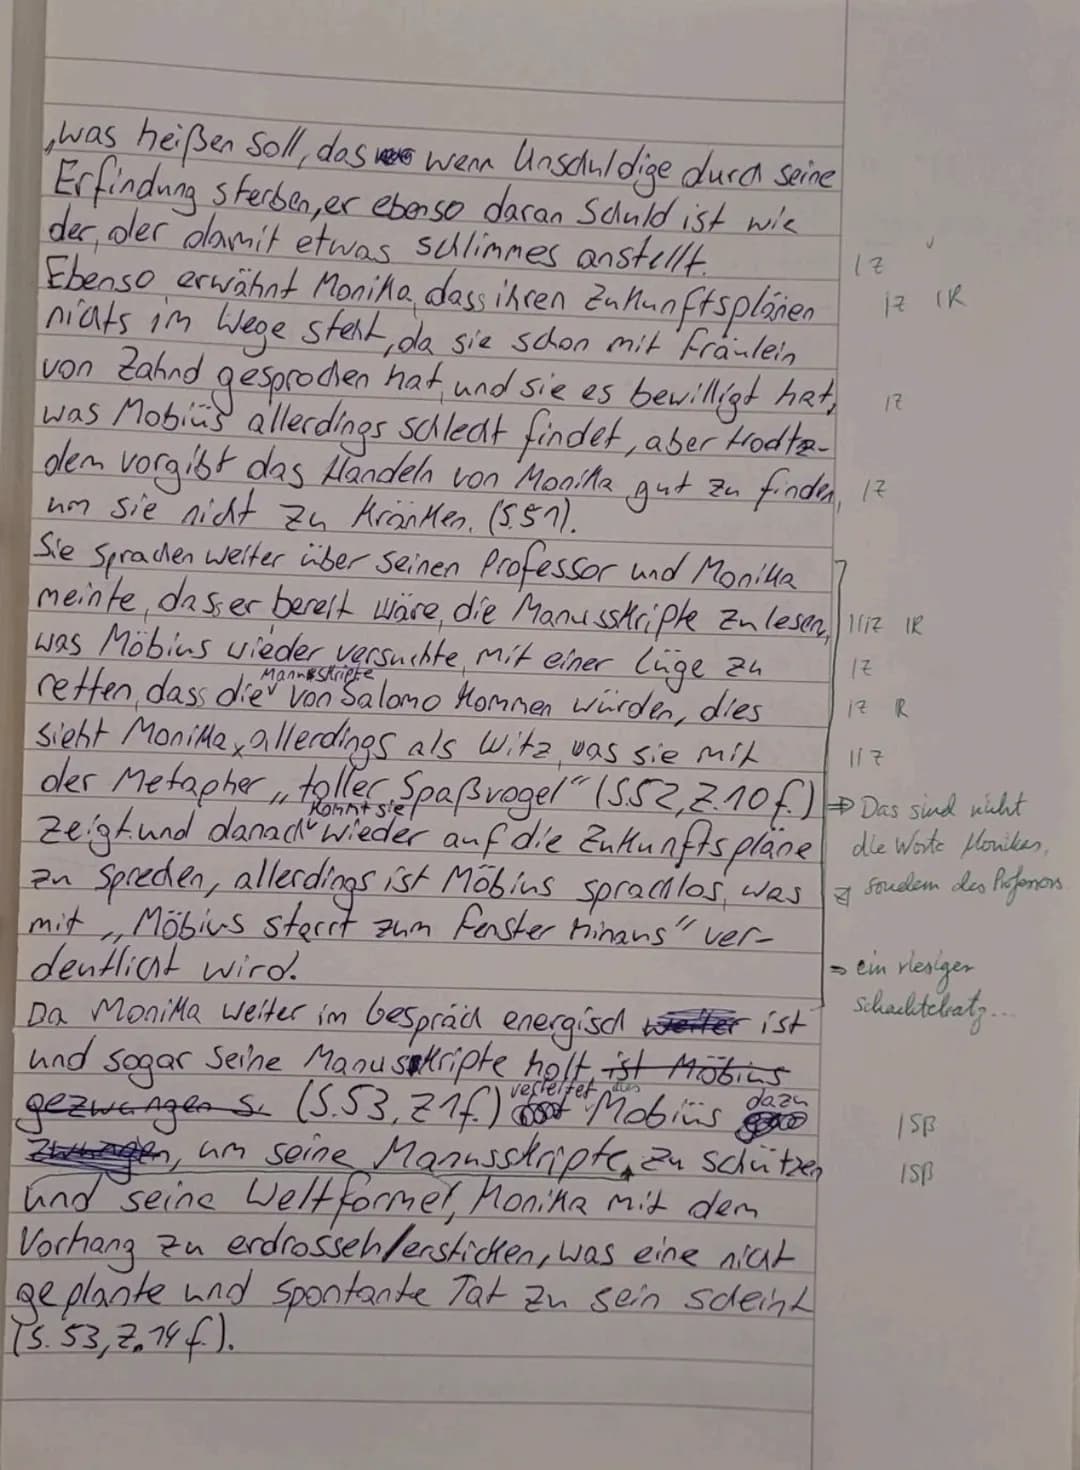 , was heißen soll, das wenn Unschuldige durch seine
Erfindung sterben, er ebenso daran Schuld ist wie
der, der damit etwas schlimmes anstellt.
IZ
Ebenso erwähnt Monika, dass ihren Zukunftsplänen
IZ IR
nichts im Wege steht, da sie schon mit Fräulein
von Zahnd gesprochen hat, und sie es bewilligt hat,
IZ
was Mobiüs allerdings schlecht findet, aber trotzdem
dem vorgibt das Handeln von Monika gut zu finden,
IZ
um sie nicht zu kränken. (S.51).
Sie sprachen weiter über seinen Professor und Monika
meinte, dass er bereit wäre, die Manusskripte zu lesen,
IIIZ IR
was Möbius wieder versuchte, mit einer Lüge zu
IZ
retten, dass die Manusskripte von Salomo kommen würden, dies
IZ R
sieht Monika, allerdings als Witz, was sie mit
IIZ
der Metapher „toller Spaßvogel“ (S.52, Z.10 f.)
⇒ Das sind nicht
die Worte Monikas,
sondern des Professors
zeigt und danach kommt sie wieder auf die Zukunftspläne
zu sprechen, allerdings ist Möbius sprachlos, was
mit „Möbius starrt zum Fenster hinaus“ ver-
deutlicht wird.
⇒ ein riesiger
Schachtelsatz...
Da Monika weiter im Gespräch energisch weiter ist
und sogar seine Manuskripte holt, ist Möbius
gezwungen s. (S.53, Z1f.) verleitet dies Mobiüs dazu
ISB
zwungen, um seine Manusskripte, zu schützen
ISB
und seine Weltformel, Monika mit dem
Vorhang zu erdrosseln/ersticken, was eine nicht
geplante und spontante Tat zu sein scheint
(S. 53, Z. 14 f.).